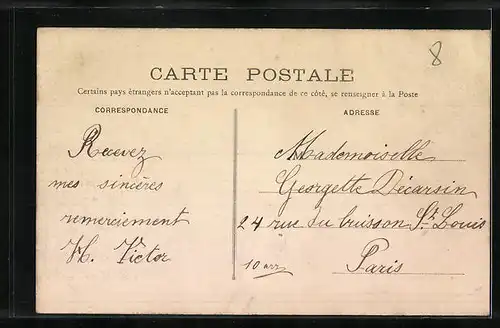 8
CARTE POSTALE
Certains pays étrangers n'acceptant pas la correspondance de ce côté, se renseigner à la Poste
CORRESPONDANCE
Recevez
mes sincères
remerciement
H. Victor
ADRESSE
Mademoiselle
Georgette Décarsin
24 rue du buisson St. Louis
10 arr
Paris